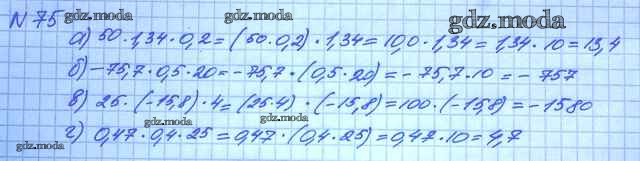 N 75 gdz.moda gdz.moda
а) 50 · 1,34 · 0,2 = (50 · 0,2) · 1,34 = 10,0 · 1,34 = 1,34 · 10 = 13,4
gdz.moda
б) -75,7 · 0,5 · 20 = -75,7 · (0,5 · 20) = -75,7 · 10 = -757
в) 25 · (-15,8) · 4 = (25 · 4) · (-15,8) = 100 · (-15,8) = -1580
gdz.moda gdz.moda
г) 0,47 · 0,4 · 25 = 0,47 · (0,4 · 25) = 0,47 · 10 = 4,7
gdz.moda gdz.moda